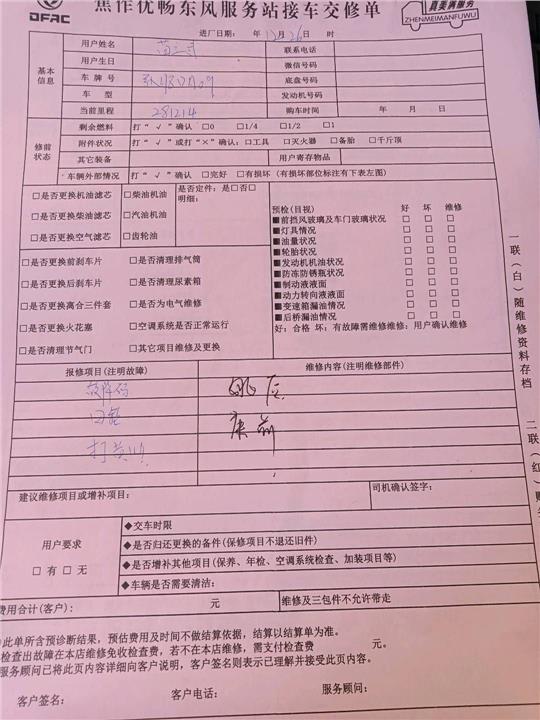 DFAC
焦作优畅东风服务站接车交修单
真美满服务
ZHENMEIMANFUWU
进厂日期： 年 12月26日 时
基本信息
用户姓名 联系电话
用户生日 微信号码
车牌号 底盘号码
车型 发动机号码
当前里程 281214 购车时间 年 月 日
修前状态
剩余燃料 打“√”确认 □0 □1/4 □1/2 □1
附件状况 打“√”或打“×”确认：□工具 □灭火器 □备胎 □千斤顶
其它装备 用户寄存物品
车辆外部情况 打“√”确认 □完好 □有损坏（有损坏部位标注有下表左图）
□是否更换机油滤芯 □柴油机油 是否定件：是□否□
明细：
□是否更换柴油滤芯 □汽油机油
□是否更换空气滤芯 □齿轮油
□是否更换前刹车片 □是否清理排气筒
□是否更换后刹车片 □是否清理尿素箱
□是否更换离合三件套 □是否为电气维修
□是否更换火花塞 □空调系统是否正常运行
□是否清理节气门 □其它项目维修及更换
预检(目视) 好 坏 维修
■前挡风玻璃及车门玻璃状况 □ □ □
■灯具情况 □ □ □
■油量状况 □ □ □
■轮胎状况 □ □ □
■发动机机油状况 □ □ □
■防冻防锈瓶状况 □ □ □
■制动液液面 □ □ □
■动力转向液液面 □ □ □
■变速箱漏油情况 □ □ □
■后桥漏油情况 □ □ □
好：合格 坏：有故障需维修维修：用户确认维修
报修项目(注明故障) 维修内容(注明维修部件)
故障码
打黄油
建议维修项目或增补项目： 司机确认签字：
用户要求
□有 □无
◆交车时限
◆是否归还更换的备件(保修项目不退还旧件)
◆是否增补其他项目(保养、年检、空调系统检查、加装项目等)
◆车辆是否需要清洁：
费用合计(客户)： 元 维修及三包件不允许带走
此单所含预诊断结果，预估费用及时间不做结算依据，结算以结算单为准。
检查出故障在本店维修免收检查费，若不在本店维修，需支付检查费 元。
服务顾问已将此页内容详细向客户说明，客户签名则表示已理解并接受此页内容。
客户签名： 客户电话： 服务顾问：
一联（白）随维修资料存档
二联（红）